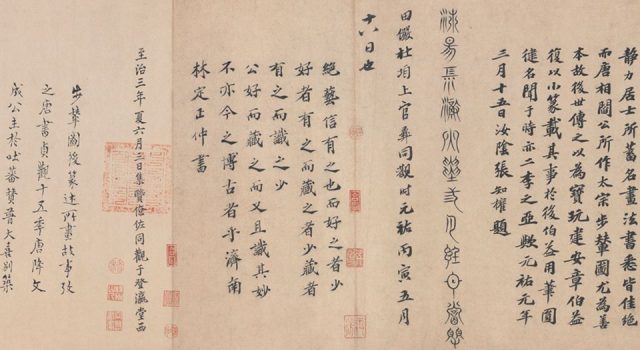 靜力居士所蓄名畫法書悉皆佳絕
而唐相閻公所作太宗步輦圖尤為善
本故後世傳之以為寶玩建安章伯益
復以小篆載其事於後伯益用筆圓
健名聞于時亦二李之亞歟元祐元年
三月十五日汝陰張知權題
田儼杜垍上官彝同觀時元祐丙寅五月
十八日也
絕藝信有之也而好之者少
好者有之而藏之者少藏者
有之而識之少
公好而藏之而又且識其妙
不亦今之博古者乎濟南
林定正仲書
至治三年夏六月三日集賢僚佐同觀于登瀛堂西
步輦圖後篆述所畫故事
之唐書貞觀十五年唐降文
成公主於吐蕃贊普大喜別築